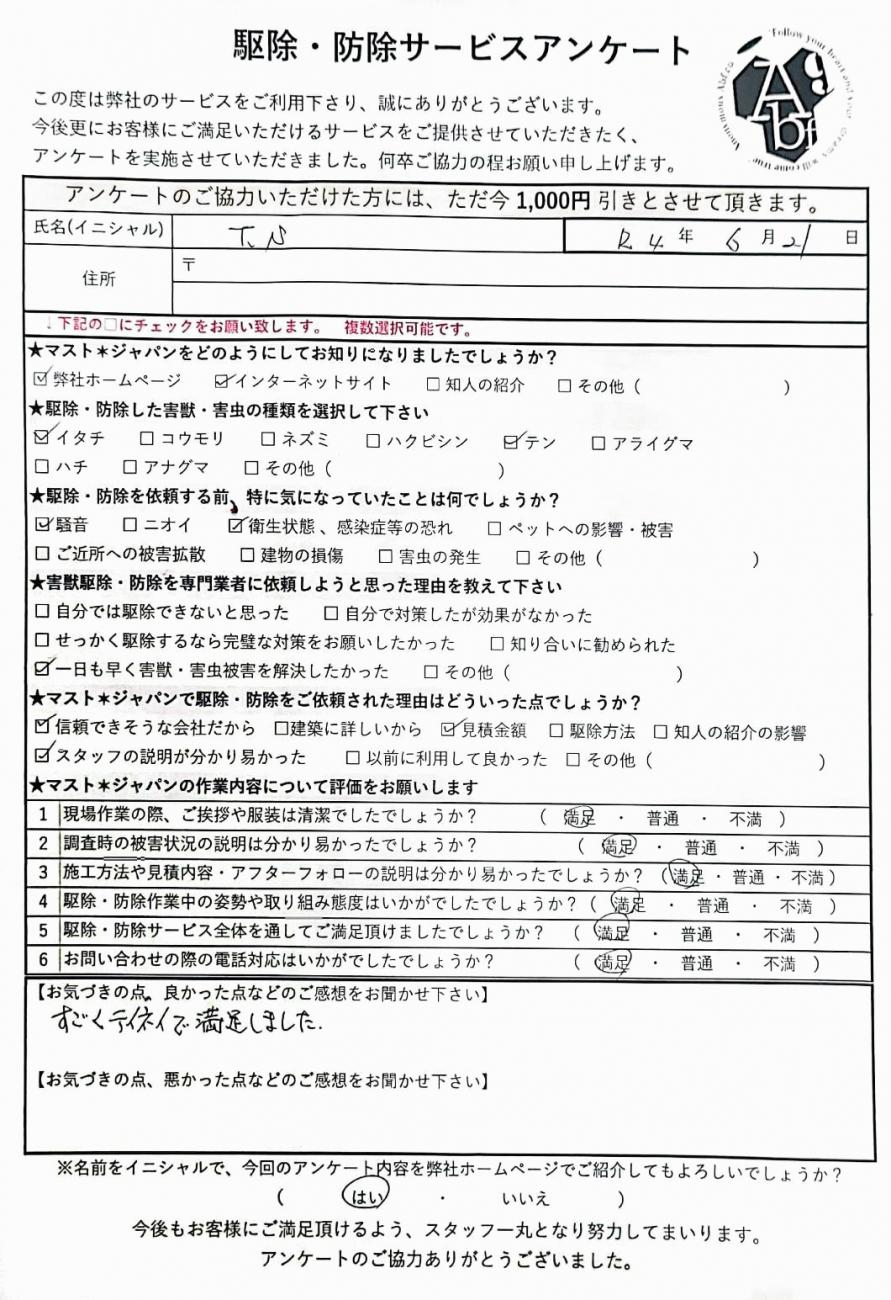 駆除・防除サービスアンケート
この度は弊社のサービスをご利用下さり、誠にありがとうございます。
今後更にお客様にご満足いただけるサービスをご提供させていただきたく、
アンケートを実施させていただきました。何卒ご協力の程お願い申し上げます。
Abf
アンケートのご協力いただけた方には、ただ今 1,000円 引きとさせて頂きます。
氏名(イニシャル) T. N R 4 年 6 月 21 日
住所 〒
↓下記の□にチェックをお願い致します。 複数選択可能です。
★マスト＊ジャパンをどのようにしてお知りになりましたでしょうか？
☑弊社ホームページ ☑インターネットサイト □知人の紹介 □その他（ ）
★駆除・防除した害獣・害虫の種類を選択して下さい
☑イタチ □コウモリ □ネズミ □ハクビシン ☑テン □アライグマ
□ハチ □アナグマ □その他（ ）
★駆除・防除を依頼する前、特に気になっていたことは何でしょうか？
☑騒音 □ニオイ ☑衛生状態、感染症等の恐れ □ペットへの影響・被害
□ご近所への被害拡散 □建物の損傷 □害虫の発生 □その他（ ）
★害獣駆除・防除を専門業者に依頼しようと思った理由を教えて下さい
□自分では駆除できないと思った □自分で対策したが効果がなかった
□せっかく駆除するなら完璧な対策をお願いしたかった □知り合いに勧められた
☑一日も早く害獣・害虫被害を解決したかった □その他（ ）
★マスト＊ジャパンで駆除・防除をご依頼された理由はどういった点でしょうか？
☑信頼できそうな会社だから □建築に詳しいから ☑見積金額 □駆除方法 □知人の紹介の影響
☑スタッフの説明が分かり易かった □以前に利用して良かった □その他（ ）
★マスト＊ジャパンの作業内容について評価をお願いします
1 現場作業の際、ご挨拶や服装は清潔でしたでしょうか？ （ 満足 ・ 普通 ・ 不満 ）
2 調査時の被害状況の説明は分かり易かったでしょうか？ （ 満足 ・ 普通 ・ 不満 ）
3 施工方法や見積内容・アフターフォローの説明は分かり易かったでしょうか？（ 満足・普通・不満）
4 駆除・防除作業中の姿勢や取り組み態度はいかがでしたでしょうか？（ 満足 ・ 普通 ・ 不満 ）
5 駆除・防除サービス全体を通してご満足頂けましたでしょうか？ （ 満足 ・ 普通 ・ 不満 ）
6 お問い合わせの際の電話対応はいかがでしたでしょうか？ （ 満足 ・ 普通 ・ 不満 ）
【お気づきの点、良かった点などのご感想をお聞かせ下さい】
すごくテイネイで満足しました.
【お気づきの点、悪かった点などのご感想をお聞かせ下さい】
※名前をイニシャルで、今回のアンケート内容を弊社ホームページでご紹介してもよろしいでしょうか？
（ はい ・ いいえ ）
今後もお客様にご満足頂けるよう、スタッフ一丸となり努力してまいります。
アンケートのご協力ありがとうございました。